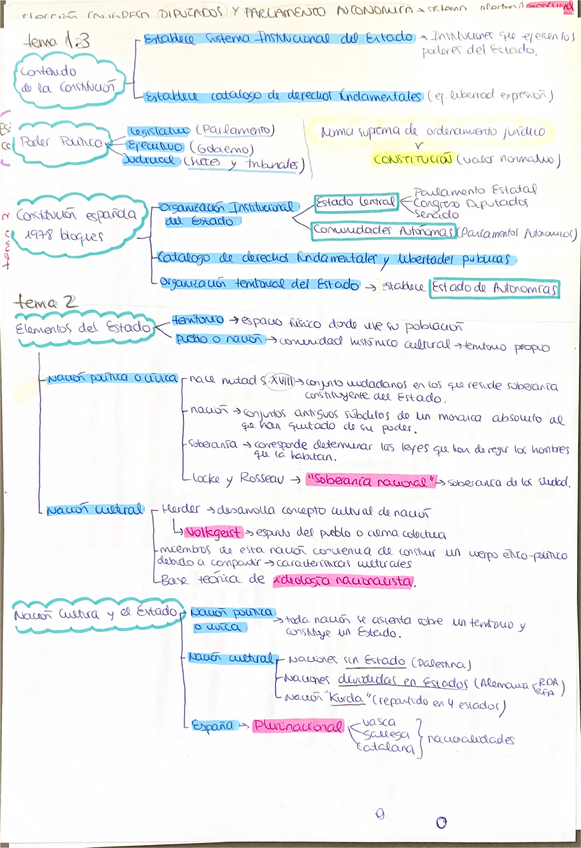 (DIPUTADOS) Y PARLAMENTO AUTONOMICO → sistema
tema 1.3
Contenido de la Constitución
Establece sistema Institucional del Estado → Instituciones que ejercen los poderes del Estado.
Establece catalogo de derechos fundamentales (ej. libertad expresión)
Poder Político
Legislativo (Parlamento)
Ejecutivo (Gobierno)
Judicial (Jueces y tribunales)
Norma suprema de ordenamiento jurídico
CONSTITUCIÓN (valor normativo)
tema 2
Constitución española 1978 bloques
Organización Institucional del Estado
Estado Central
Parlamento Estatal
Congreso Diputados
Senado
Comunidades Autónomas (Parlamentos Autonomicos)
Catalogo de derechos fundamentales y libertades publicas
Organización territorial del Estado → establece Estado de Autonomías
tema 2
Elementos del Estado
territorio → espacio físico donde vive su población
pueblo o nación → comunidad histórico cultural → territorio propio
Nación política o cívica
nace mitad S.XVIII → conjunto ciudadanos en los que reside soberanía
constituyente del Estado.
nación → conjuntos antiguos súbditos de un monarca absoluto al
que han quitado de su poder.
soberanía → corresponde determinar las leyes que han de regir los hombres
que la habitan.
Locke y Rosseau → "Soberanía nacional" → soberanía de los ciudad.
Nación cultural
Herder → desarrolla concepto cultural de nación
Volkgeist → espíritu del pueblo o alma colectiva
miembros de esta nación convencia de construir un cuerpo ético-político
debido a compartir → características culturales
Base teórica de ideología nacionalista.
Nación Cultura y el Estado
Nación política o cívica
→ toda nación se asienta sobre un territorio y
constituye un Estado.
Nación cultural
Naciones sin Estado (Palestina)
Naciones divididas en Estados (Alemania RDA RFA
Nación "Kurda" (repartido en 4 estados)
España → Plurinacional
vasca
gallega
catalana
nacionalidades